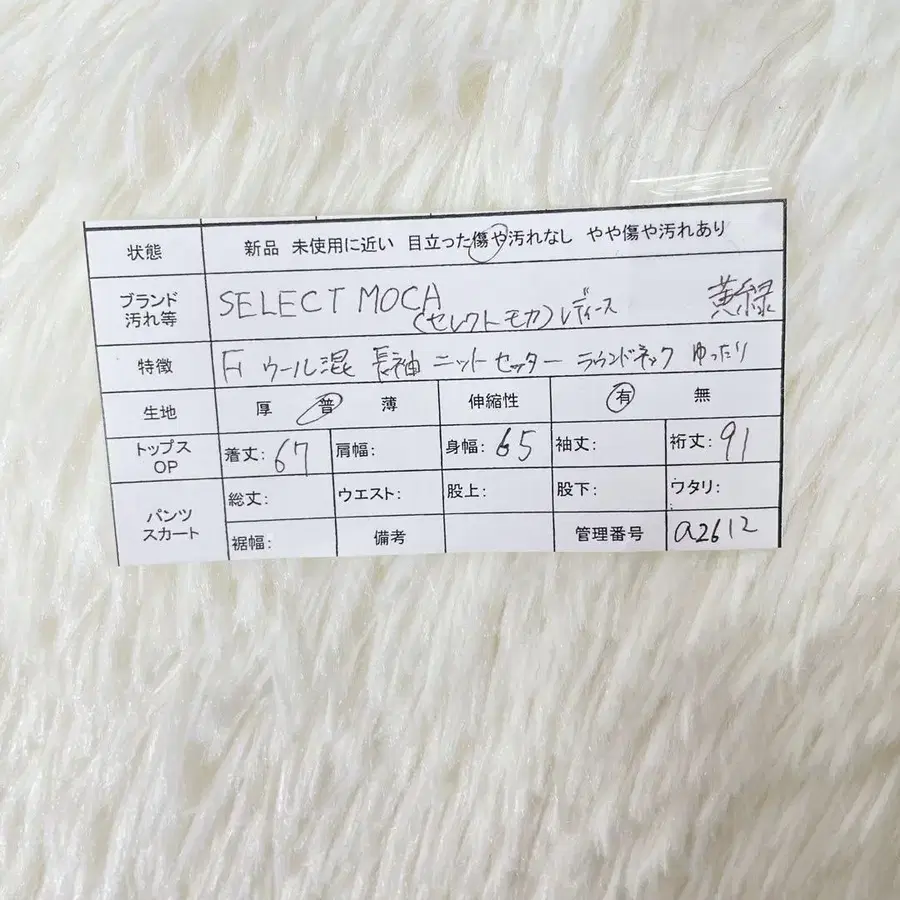 状態 新品 未使用に近い 目立った傷や汚れなし やや傷や汚れあり
ブランド
汚れ等
SELECT MOCA
(セレクトモカ)レディース 黄緑
特徴 F ウール混 長袖 ニット セッター ラウンドネック ゆったり
生地 厚 普 薄 伸縮性 有 無
トップス
OP
着丈: 67 肩幅: 身幅: 65 袖丈: 裄丈: 91
パンツ
スカート
総丈: ウエスト: 股上: 股下: ワタリ:
裾幅: 備考 管理番号 a2612